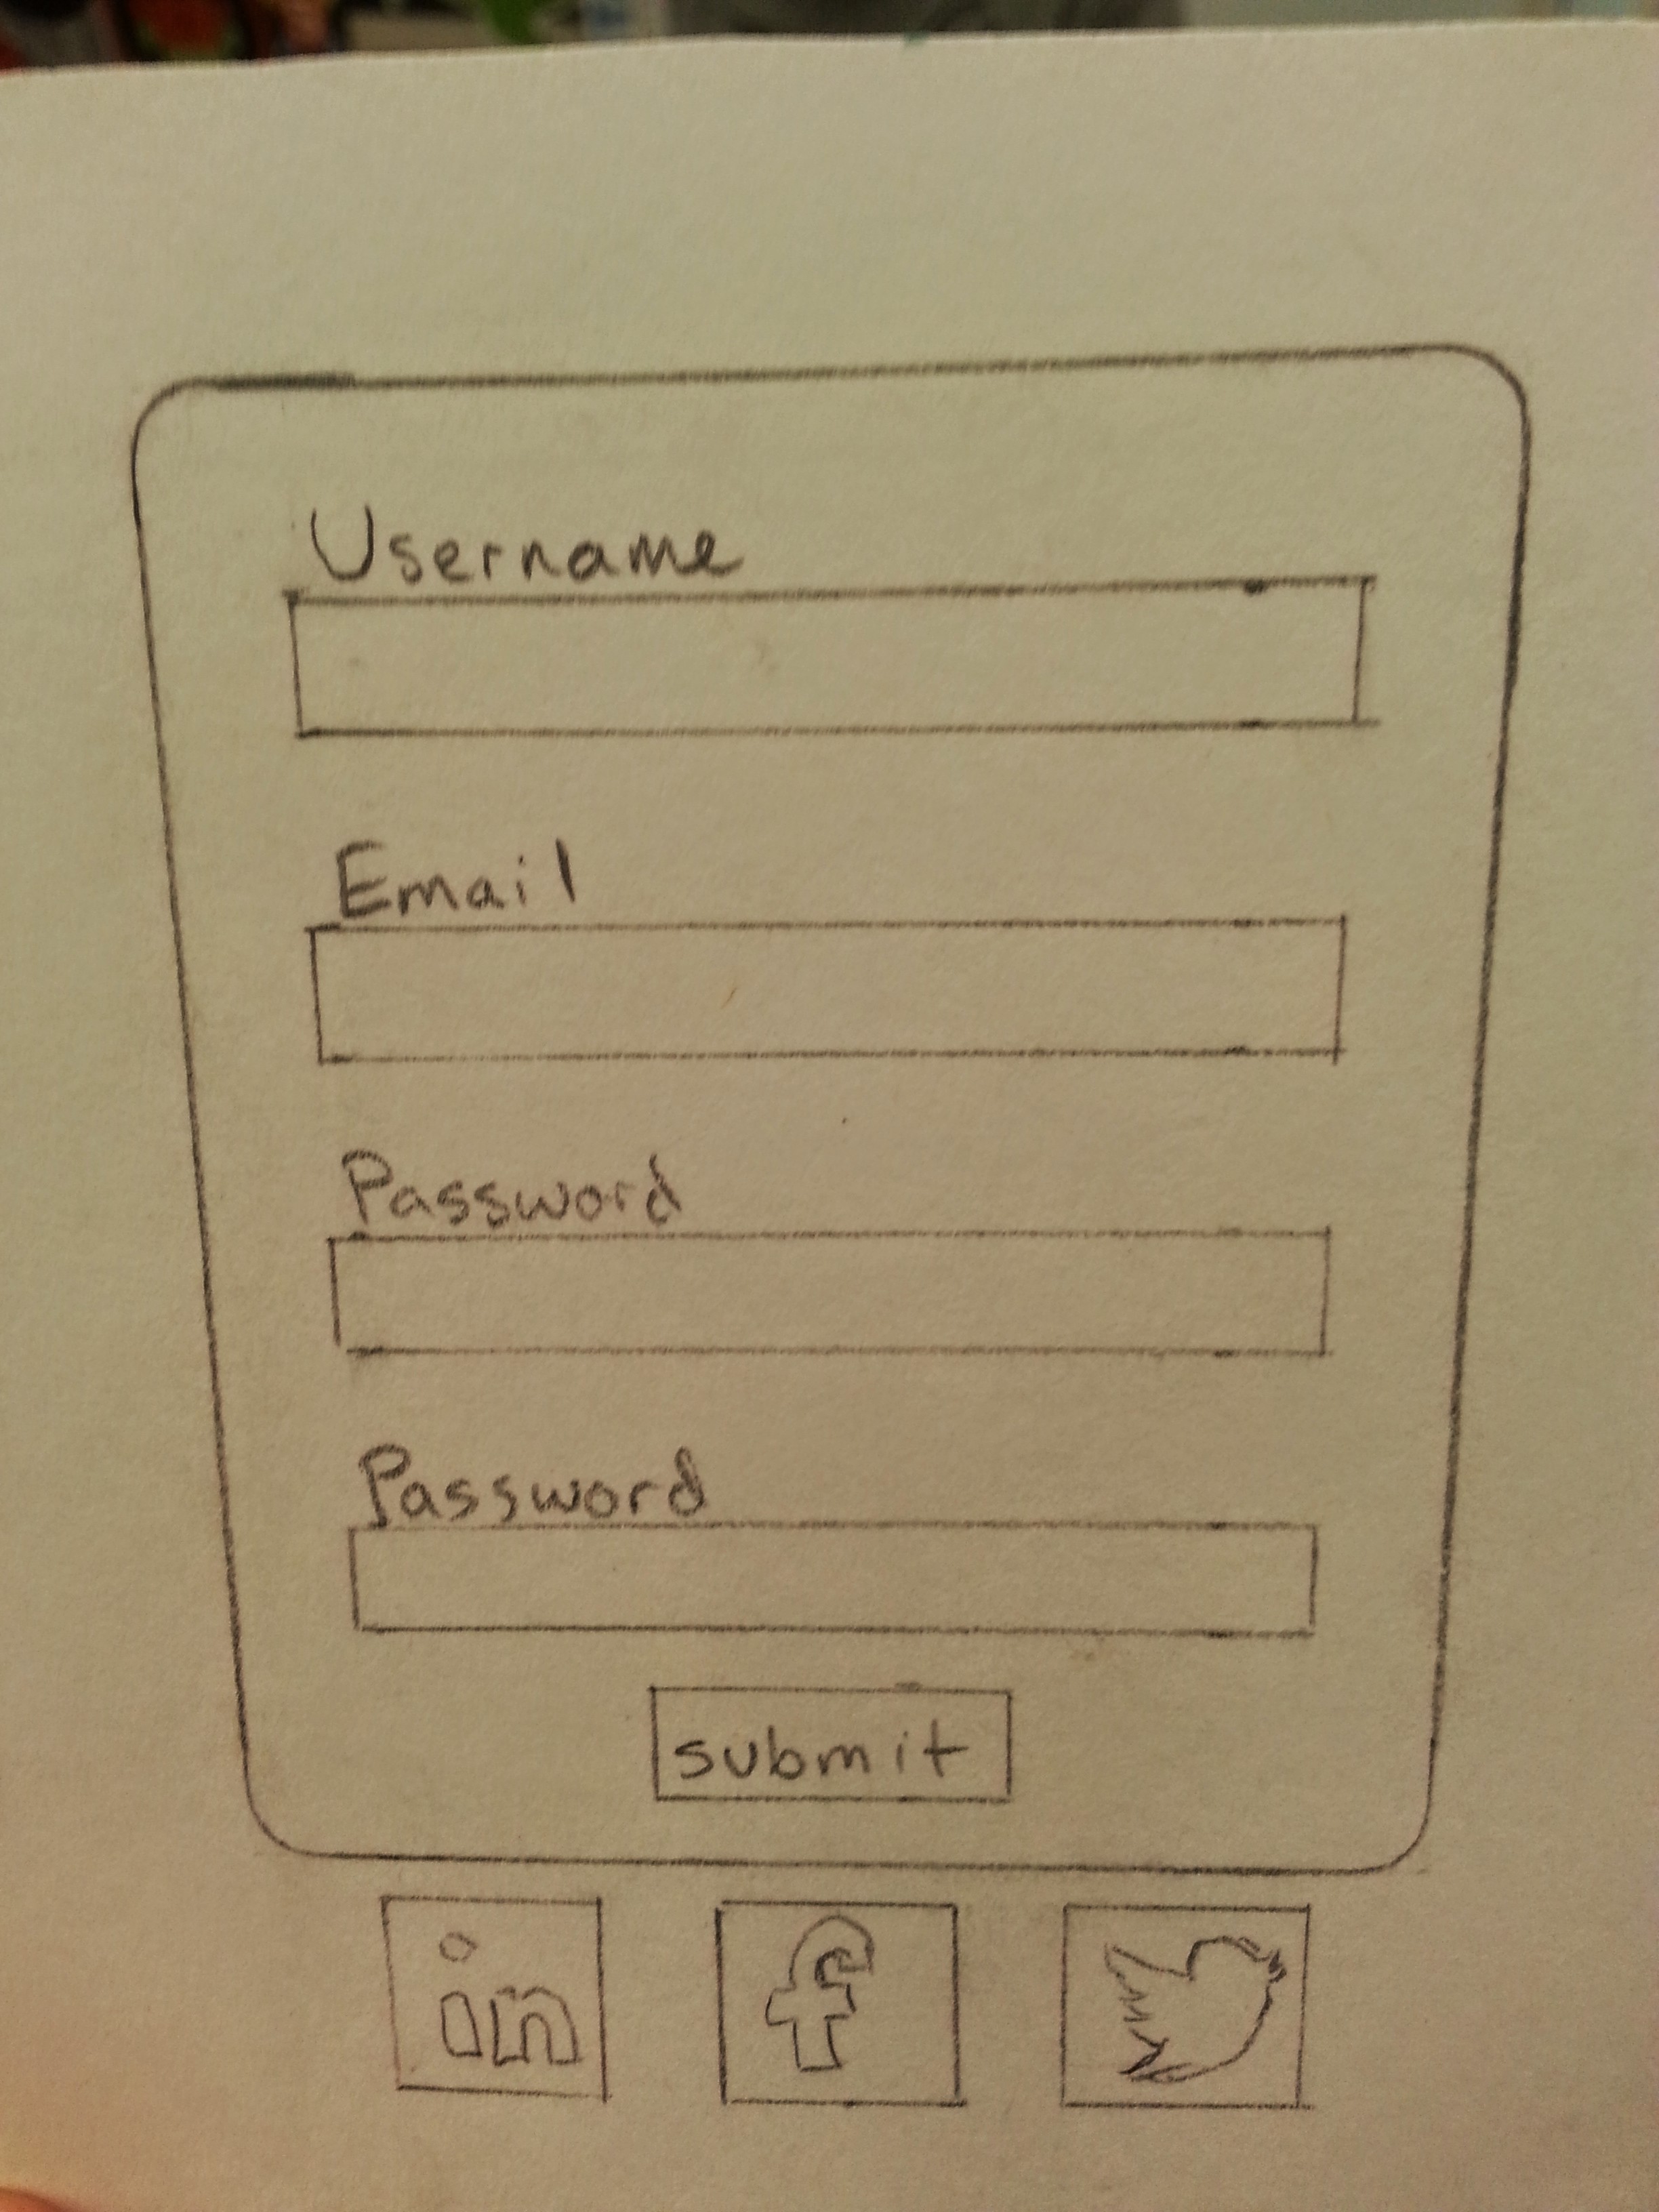 Username
Email
Password
Password
submit
in f